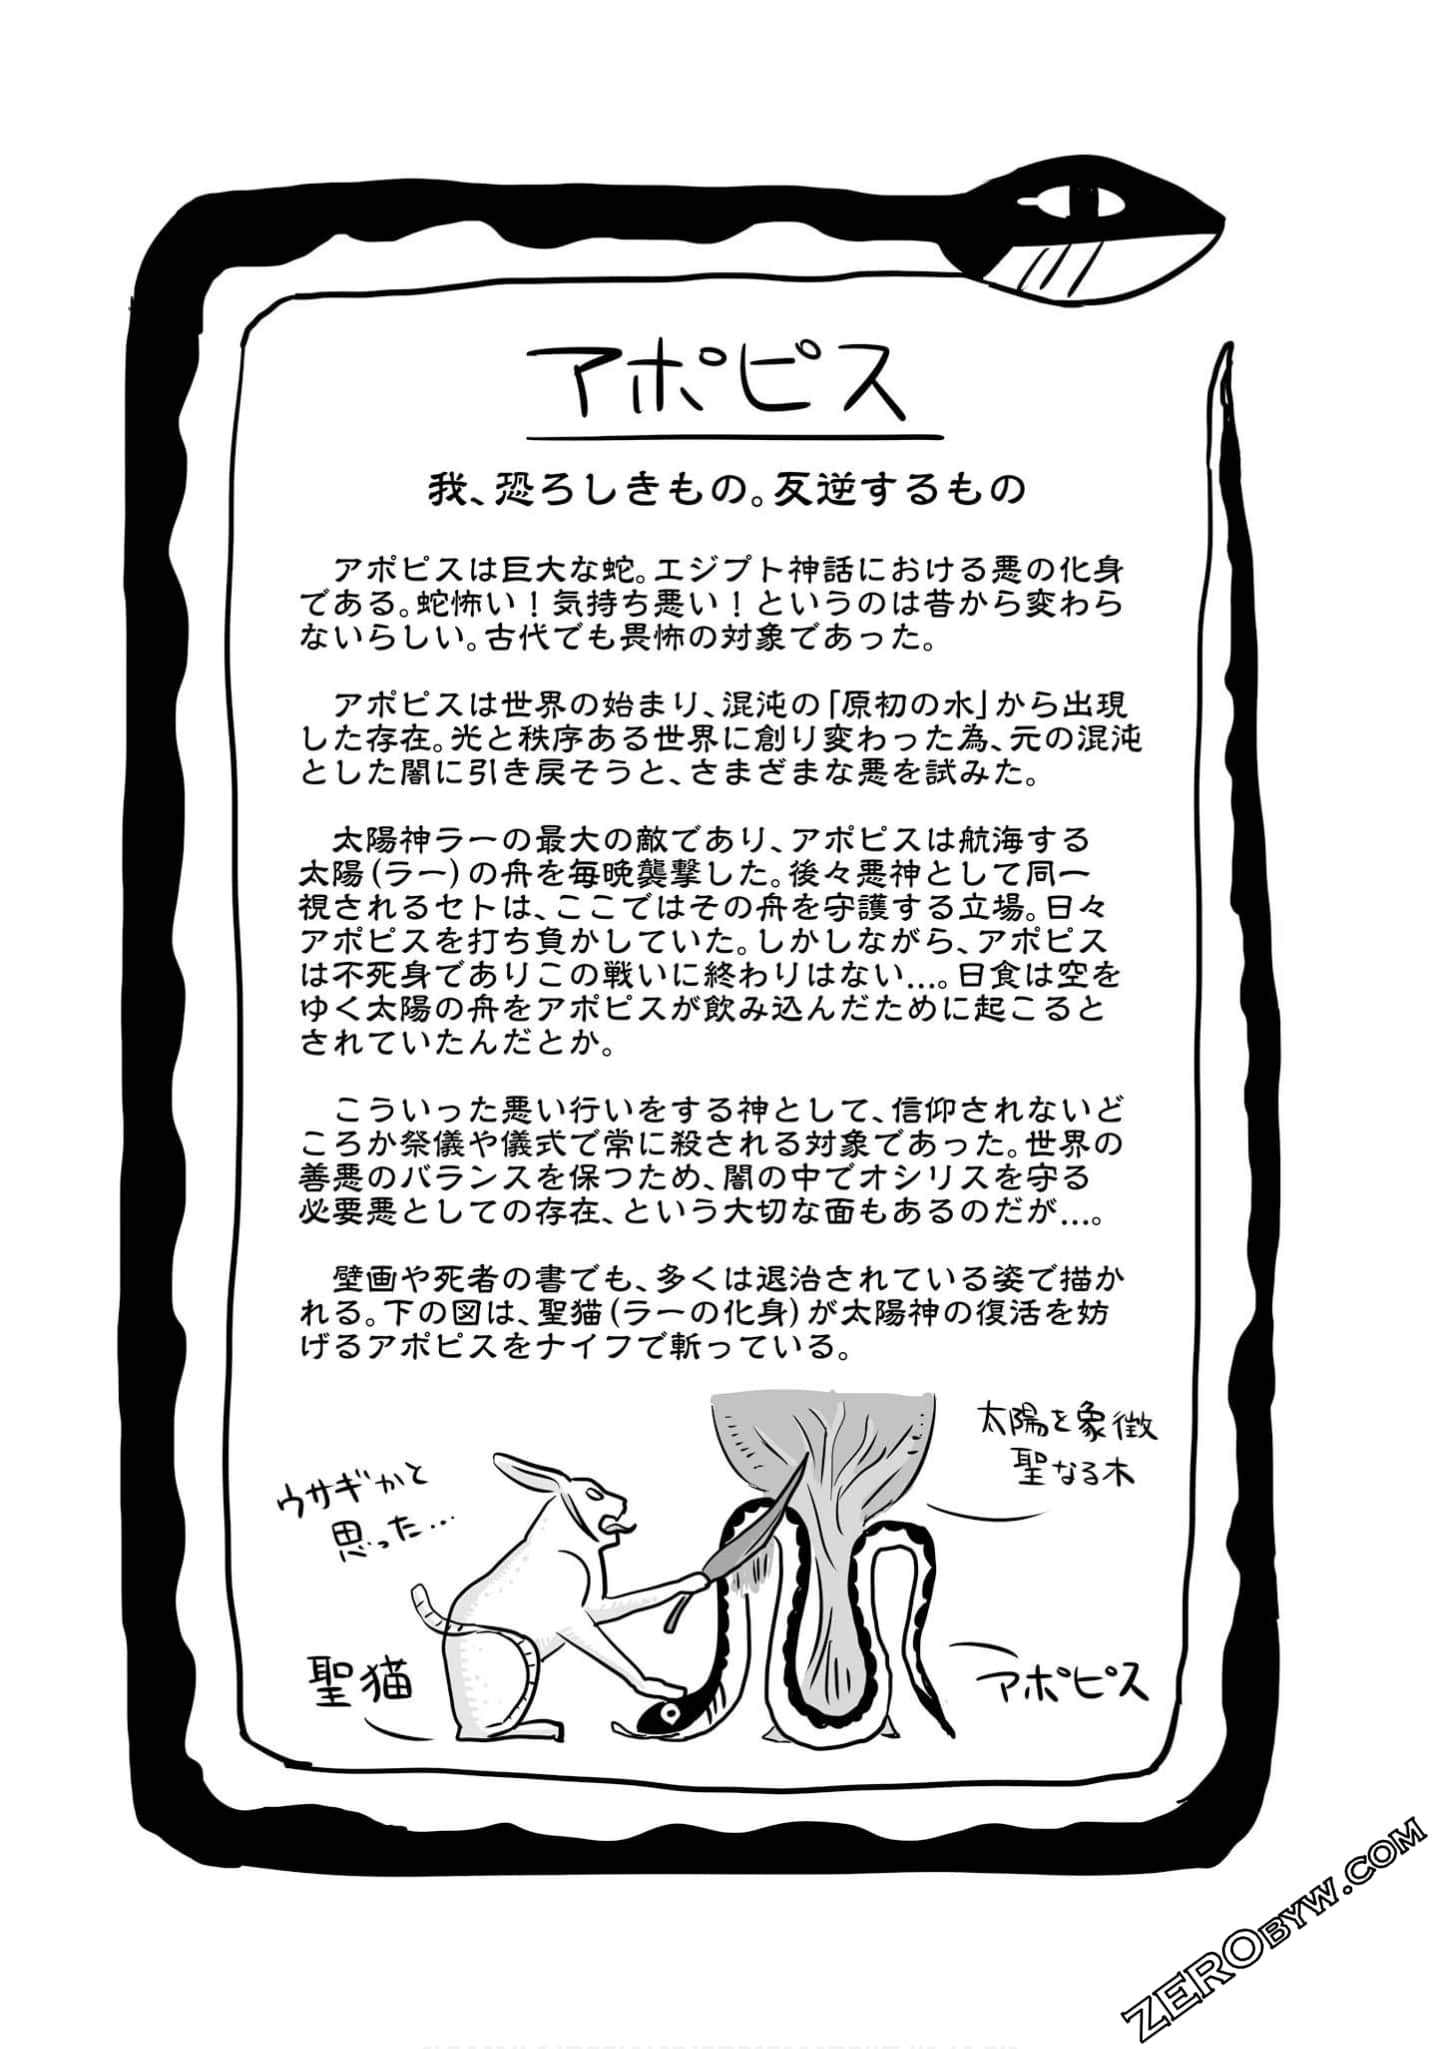 アポピス
我、恐ろしきもの。反逆するもの
アポピスは巨大な蛇。エジプト神話における悪の化身
である。蛇怖い！気持ち悪い！というのは昔から変わら
ないらしい。古代でも畏怖の対象であった。
アポピスは世界の始まり、混沌の「原初の水」から出現
した存在。光と秩序ある世界に創り変わった為、元の混沌
とした闇に引き戻そうと、さまざまな悪を試みた。
太陽神ラーの最大の敵であり、アポピスは航海する
太陽(ラー)の舟を毎晩襲撃した。後々悪神として同一
視されるセトは、ここではその舟を守護する立場。日々
アポピスを打ち負かしていた。しかしながら、アポピス
は不死身でありこの戦いに終わりはない…。日食は空を
ゆく太陽の舟をアポピスが飲み込んだために起こると
されていたんだとか。
こういった悪い行いをする神として、信仰されないど
ころか祭儀や儀式で常に殺される対象であった。世界の
善悪のバランスを保つため、闇の中でオシリスを守る
必要悪としての存在、という大切な面もあるのだが…。
壁画や死者の書でも、多くは退治されている姿で描か
れる。下の図は、聖猫(ラーの化身)が太陽神の復活を妨
げるアポピスをナイフで斬っている。
太陽を象徴
聖なる木
ウサギかと
思った…
聖猫
アポピス
ZEROBYW.COM